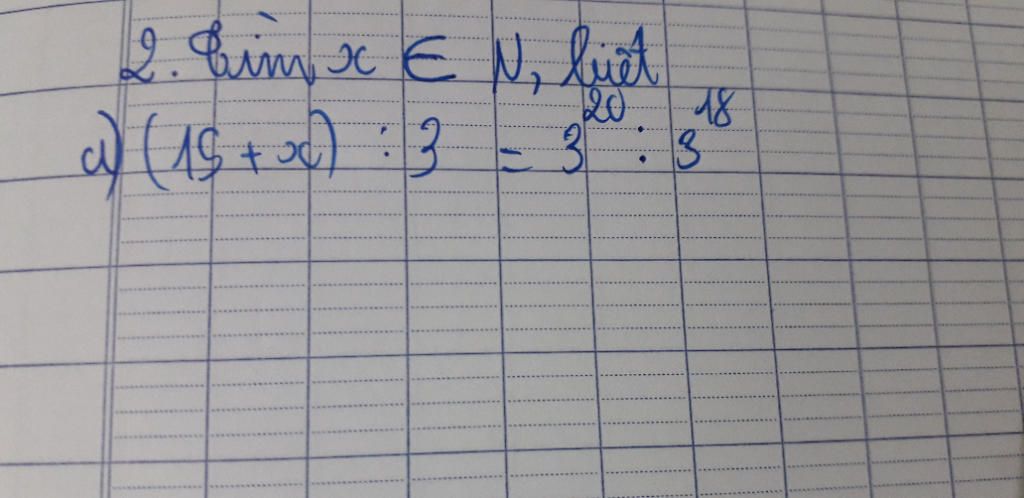 2. Tìm x ∈ N, biết
a) (15 + x) : 3 = 3²⁰ : 3¹⁸